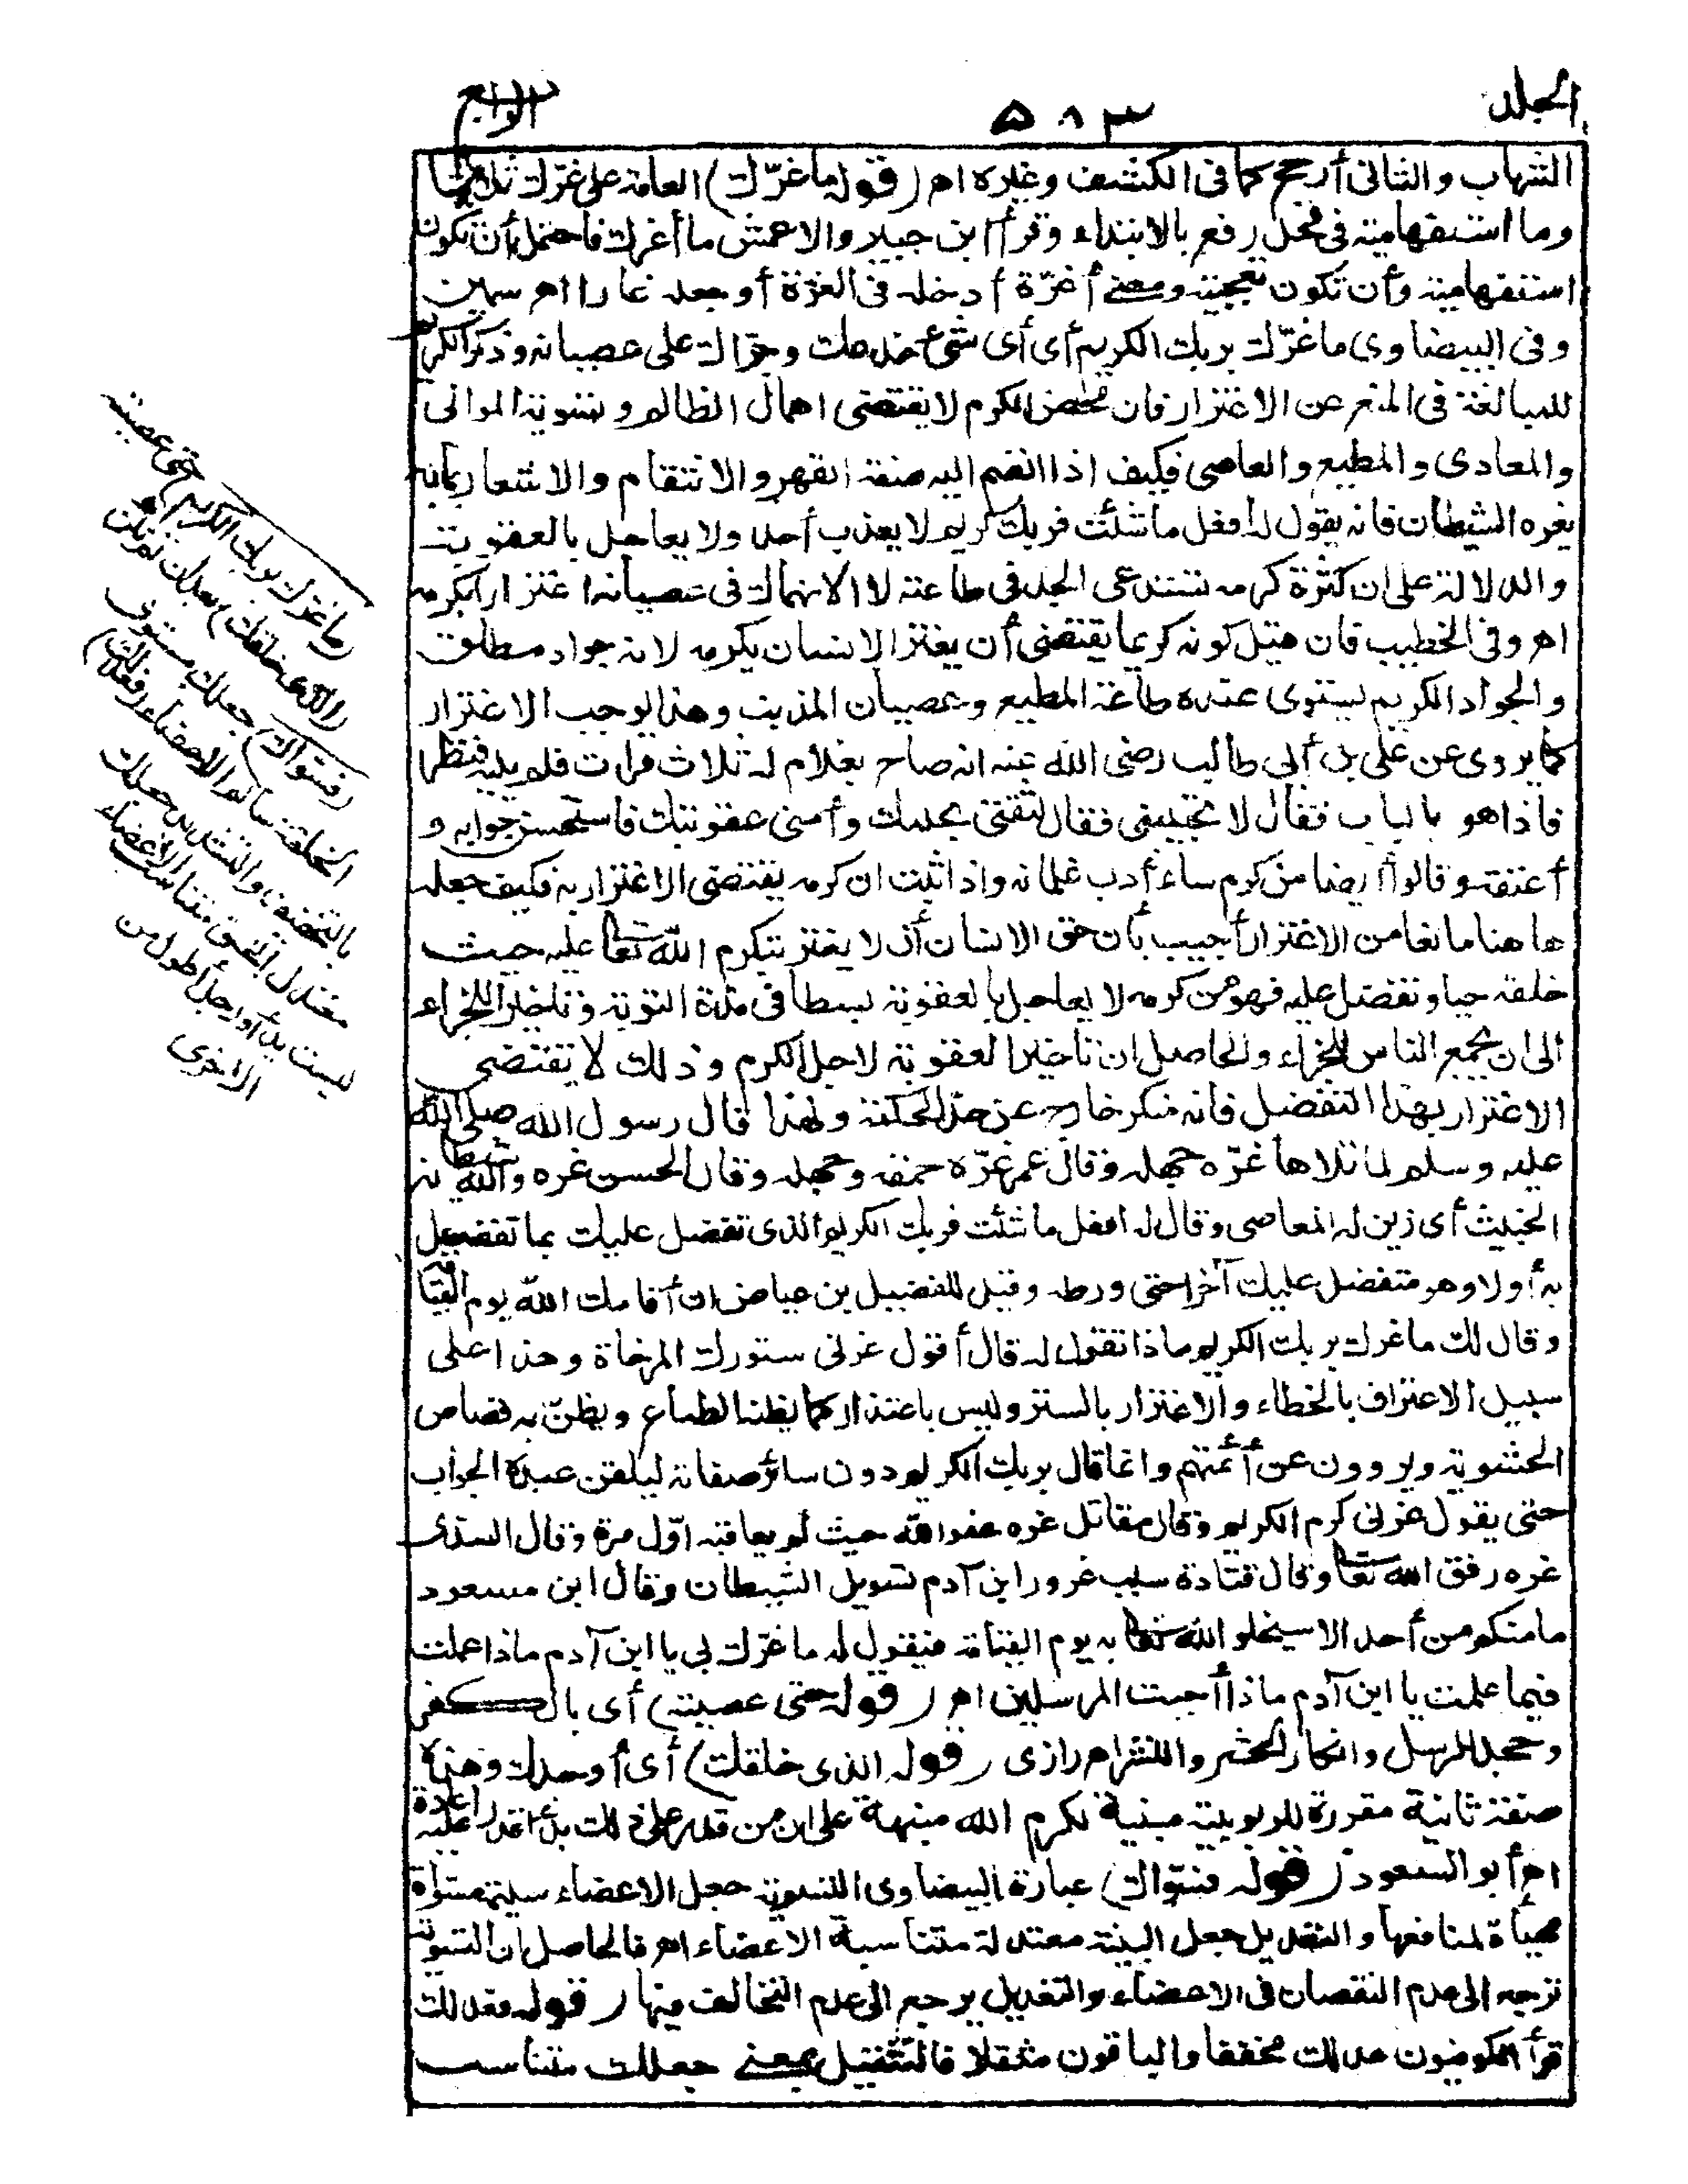 الجلد
٥٨٣
الرابع
الشهاب والثانى أرجح كما فى الكشف وغيره اهـ (قوله ما غرّك) العامة على غرّك ثلاثيا
وما استفهامية فى محل رفع بالابتداء وقرأ ابن جبير والاعمش ما أغرك فاحتمل أن تكون
استفهامية وأن تكون تعجبية ومعنى أغرّه أدخله فى الغرّة أو جعله غارا اهـ سمين
وفى البيضاوى ما غرّك بربك الكريم أى أى شئ خدعك وجرّاك على عصيانه وذكر الكريم
للمبالغة فى المنع عن الاغترار فان محض الكرم لا يقتضى اهمال الظالم وتسوية الموالى
والمعادى والمطيع والعاصى فكيف اذا انضم اليه صفة القهر والانتقام والاشعار بما به
يغره الشيطان فانه يقول له افعل ما شئت فربك كريم لا يعذب أحدا ولا يعاجل بالعقوبة
والدلالة على ان كثرة كرمه تستدعى الجد فى طاعته لا الانهماك فى عصيانه اغترارا بكرمه
اهـ وفى الخطيب فان قيل كونه كريما يقتضى أن يغتر الانسان بكرمه لانه جواد مطلق
والجواد الكريم يستوى عنده طاعة المطيع وعصيان المذنب وهذا يوجب الاغترار
كما يروى عن على بن أبى طالب رضى الله عنه انه صاح بغلام له ثلاث مرات فلم يلبه فنظر
فاذا هو بالباب فقال لا تجيبنى فقال لثقتى بحلمك وأمنى عقوبتك فاستحسن جوابه و
أعتقه وقالوا ايضا من كرم ساء أدب غلمانه واذا ثبت ان كرمه يقتضى الاغترار به فكيف جعله
هاهنا مانعا من الاغترار أجيب بأن حق الانسان أن لا يغتر بتكرم الله تعالى عليه حيث
خلقه حيا وتفضل عليه فهو من كرمه لا يعاجل بالعقوبة بسطا فى مدة التوبة وتاخيرا للجزاء
الى ان يجمع الناس للجزاء والحاصل ان تاخير العقوبة لاجل الكرم وذلك لا يقتضى
الاغترار بهذا التفضل فانه منكر خارج عن حد الحكمة ولهذا قال رسول الله صلى الله
عليه وسلم لما تلاها غرّه جهله وقال عمر غرّه حمقه وجهله وقال الحسن غره والله شيطانه
الخبيث أى زين له المعاصى وقال له افعل ما شئت فربك الكريم الذى تفضل عليك بما تفضل
به أولا وهو متفضل عليك آخرا حتى ورطه وقيل للفضيل بن عياض ان أقامك الله يوم القيامة
وقال لك ما غرك بربك الكريم ماذا تقول له قال أقول غرنى ستورك المرخاة وهذا على
سبيل الاعتراف بالخطاء والاغترار بالستر وليس باعتذار كما يظنه الطماع ويظنّ به قصاص
الحشوية ويروون عن أئمتهم وانما قال بربك الكريم دون سائر صفاته ليلقن عبده الجواب
حتى يقول غرنى كرم الكريم وقال مقاتل غره عفو الله حيث لم يعاقبه اوّل مرة وقال السدى
غره رفق الله تعالى وقال قتادة سبب غرور ابن آدم تسويل الشيطان وقال ابن مسعود
ما منكم من أحد الا سيخلو الله تعالى به يوم القيامة فيقول له ما غرّك بى يا ابن آدم ماذا عملت
فيما علمت يا ابن آدم ماذا أجبت المرسلين اهـ (قوله حتى عصيته) أى بالكفر
وجحد الرسل وانكار الحشر والنشر اهـ رازى (قوله الذى خلقك) أى أوجدك وهذه
صفة ثانية مقررة للربوبية مبينة لكرم الله منبهة على ان من قدر على ذلك بدءا قدر عليه اعادة
اهـ أبو السعود (قوله فسوّاك) عبارة البيضاوى التسوية جعل الاعضاء سليمة مسواة
مهيأة لمنافعها والتعديل جعل البنية معتدلة متناسبة الاعضاء اهـ فالحاصل ان التسوية
ترجع الى عدم النقصان فى الاعضاء والتعديل يرجع الى عدم التخالف فيها (قوله فعدلك
قرأ الكوفيون عدلك مخففا والباقون مثقلا فالتثقيل بمعنى جعلك متناسب
(ما غرك بربك الكريم) حتى عصيته
(الذى خلقك) بعد ان لم تكن
(فسواك) جعلك مستوى
الخلقة سالم الاعضاء (فعدلك)
بالتخفيف والتشديد جعلك
معتدل الخلق متناسب الاعضاء
ليست يد أو رجل أطول من
الاخرى